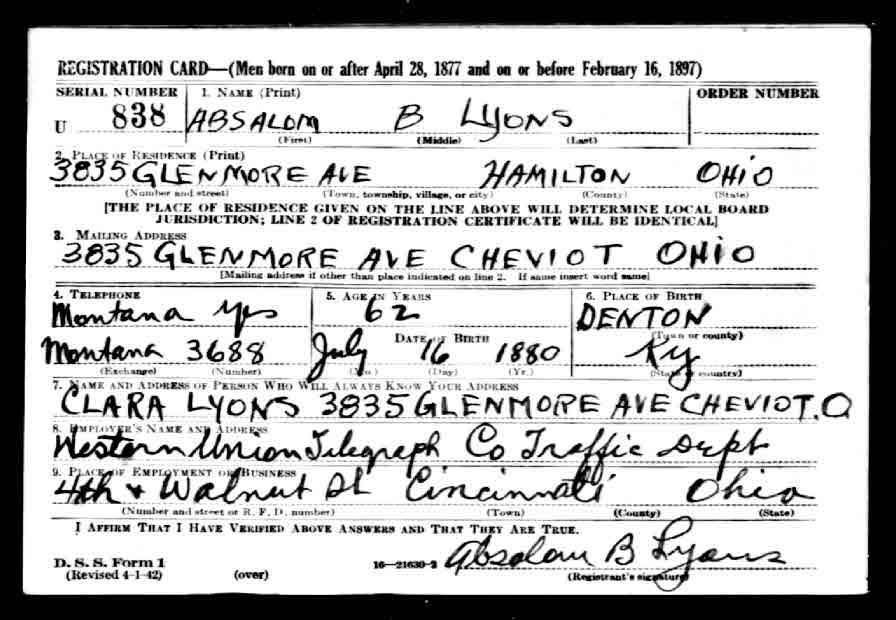 REGISTRATION CARD—(Men born on or after April 28, 1877 and on or before February 16, 1897)
SERIAL NUMBER 1. NAME (Print) ORDER NUMBER
U 838 ABSALOM B LYONS
(First) (Middle) (Last)
2. PLACE OF RESIDENCE (Print)
3835 GLENMORE AVE HAMILTON OHIO
(Number and street) (Town, township, village, or city) (County) (State)
[THE PLACE OF RESIDENCE GIVEN ON THE LINE ABOVE WILL DETERMINE LOCAL BOARD
JURISDICTION; LINE 2 OF REGISTRATION CERTIFICATE WILL BE IDENTICAL]
3. MAILING ADDRESS
3835 GLENMORE AVE CHEVIOT OHIO
[Mailing address if other than place indicated on line 2. If same insert word same]
4. TELEPHONE 5. AGE IN YEARS 6. PLACE OF BIRTH
Montana yes 62 DENTON
DATE OF BIRTH (Town or county)
Montana 3688 July 16 1880 Ky
(Exchange) (Number) (Mo.) (Day) (Yr.) (State or country)
7. NAME AND ADDRESS OF PERSON WHO WILL ALWAYS KNOW YOUR ADDRESS
CLARA LYONS 3835 GLENMORE AVE CHEVIOT. O
8. EMPLOYER'S NAME AND ADDRESS
Western Union Telegraph Co Traffic Dept
9. PLACE OF EMPLOYMENT OR BUSINESS
4th + Walnut St Cincinnati Ohio
(Number and street or R. F. D. number) (Town) (County) (State)
I AFFIRM THAT I HAVE VERIFIED ABOVE ANSWERS AND THAT THEY ARE TRUE.
D. S. S. Form 1
(Revised 4-1-42) (over) 16—21630-2 Absalom B Lyons
(Registrant's signature)